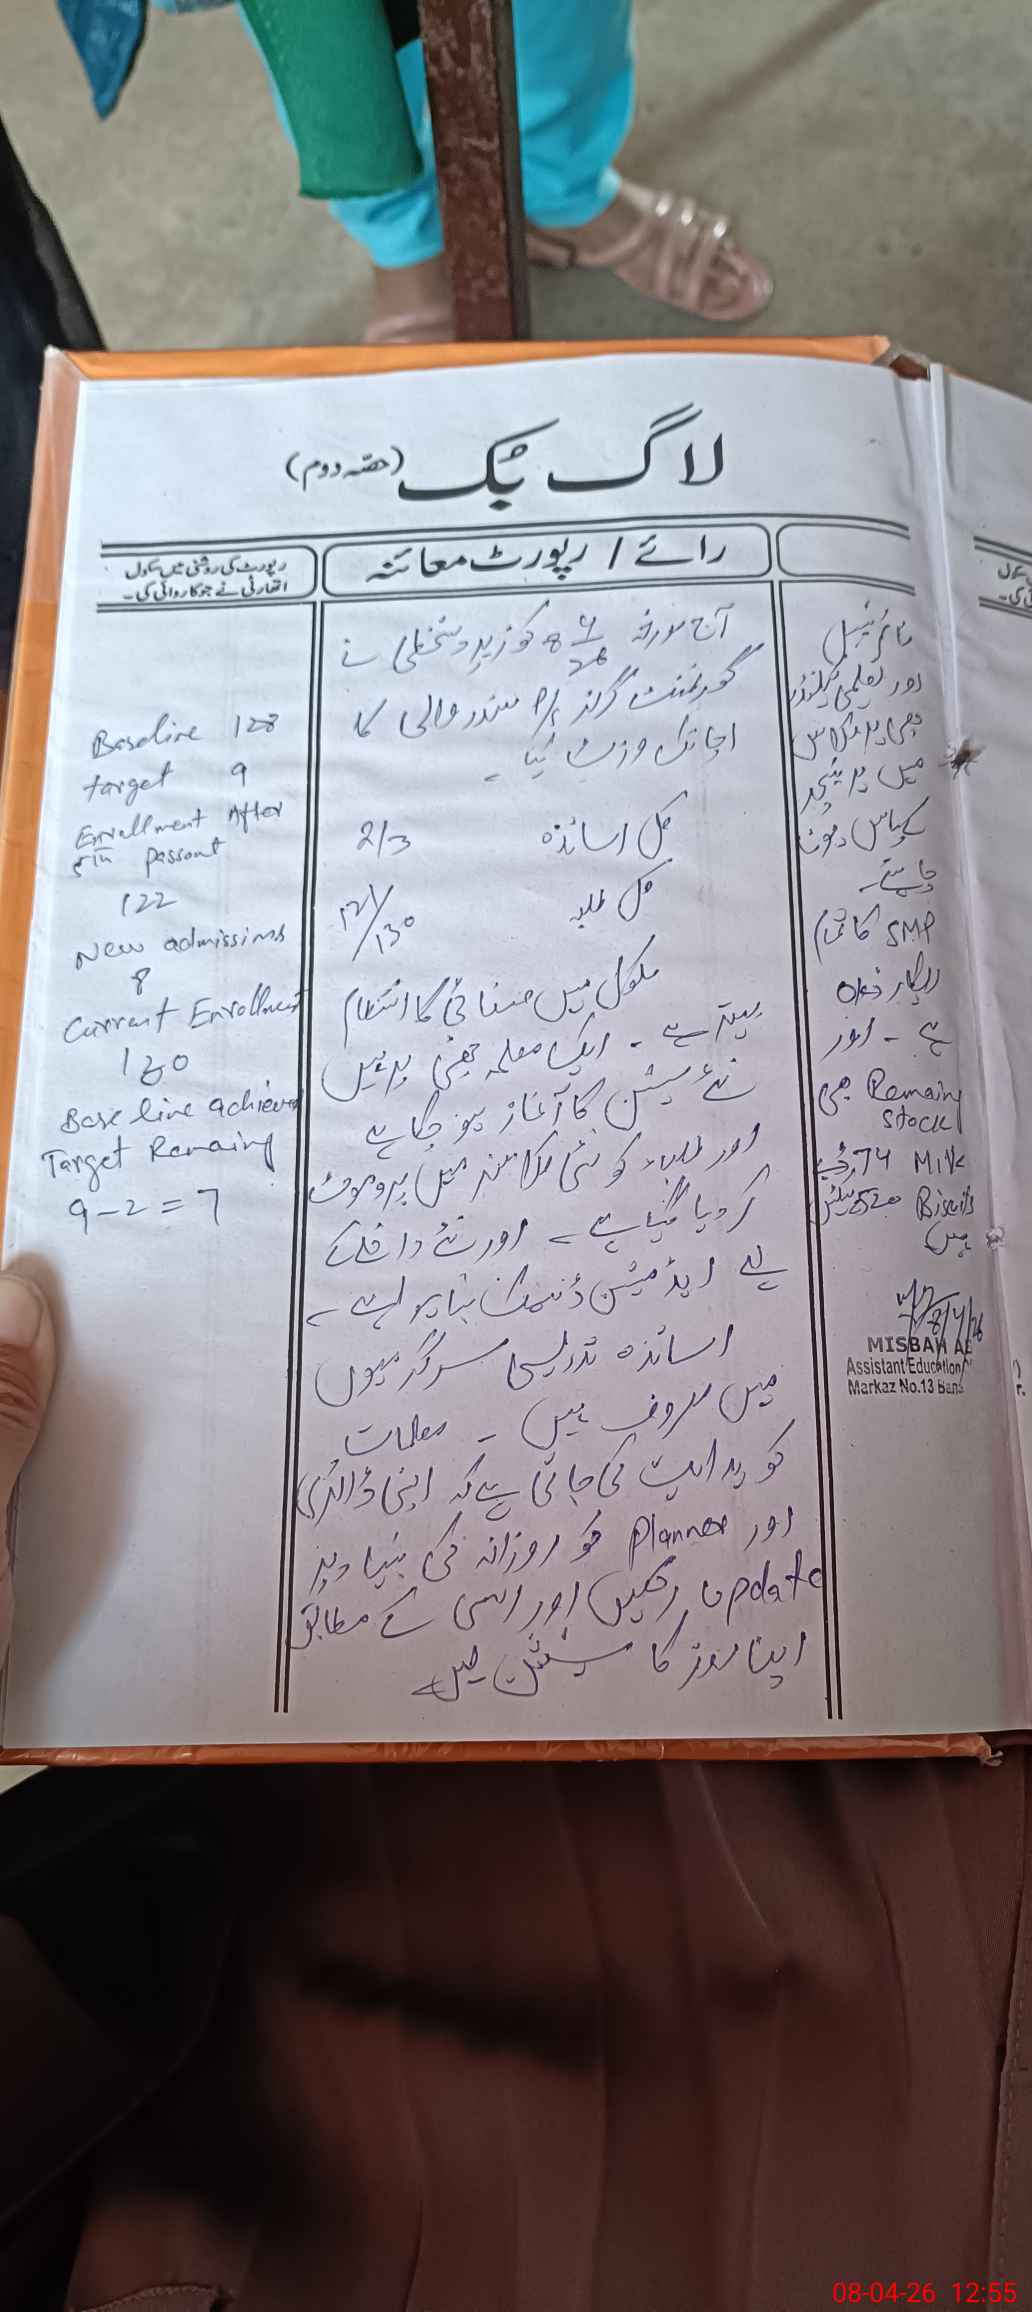 لاگ بک (حصہ دوم)
رائے / رپورٹ معائنہ
رپورٹ کی روشنی میں سکول
اتھارٹی نے جو کاروائی کی۔
آج مورخہ 8/4/26 کو زیر دستخطی نے
گورنمنٹ گرلز P/S سندر والی کا
اچانک وزٹ کیا۔
کل اساتذہ 2/3
کل طلبہ 121/130
سکول میں صفائی کا انتظام
بہتر ہے۔ ایک معلمہ چھٹی پر ہیں
نئے سیشن کا آغاز ہو چکا ہے
اور طلباء کو نئی کلاسز میں پروموٹ
کر دیا گیا ہے۔ اور نئے داخلے کے
لیے ایڈمیشن ڈیسک بنا ہوا ہے۔
اساتذہ تدریسی سرگرمیوں
میں مصروف ہیں۔ معلمات
کو ہدایت کی جاتی ہے کہ اپنی ڈائری
اور Planner کو روزانہ کی بنیاد پر
update رکھیں اور اسی کے مطابق
اپنا روز کا سیشن لیں
Baseline 128
target 9
Enrollment After
5th passout
122
New admissions
8
Current Enrollment
130
Base line achieved
Target Remaing
9-2=7
ٹائم ٹیبل
اور تعلمی کیلنڈر
بھی ہر کلاس
میں ہر ٹیچر
کے پاس ہونا
چاہئے۔
SMP کا تمام
ریکارڈ OK
ہے۔ اور
Remaing بھی
stock
Milk 74 ڈبے
Biscuits 520
ہیں
8/4/26
MISBAH
Assistant Education
Markaz No.13
سکول
کی۔
08-04-26 12:55